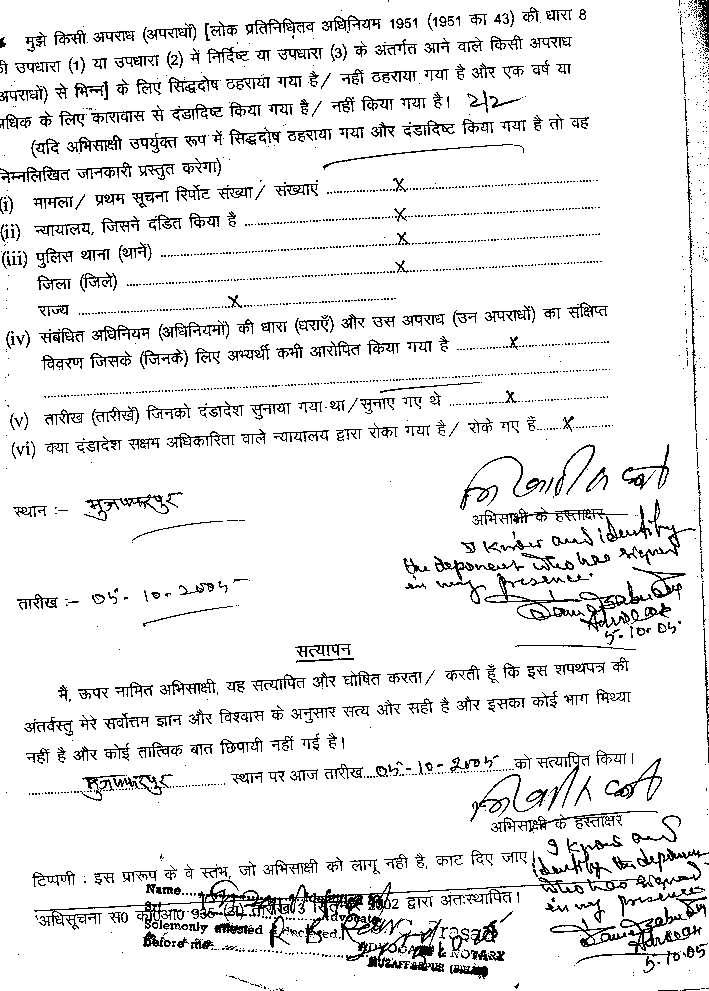 मुझे किसी अपराध (अपराधों) [लोक प्रतिनिधित्व अधिनियम 1951 (1951 का 43) की धारा 8
की उपधारा (1) या उपधारा (2) में निर्दिष्ट या उपधारा (3) के अंतर्गत आने वाले किसी अपराध
अपराधों) से भिन्न] के लिए सिद्धदोष ठहराया गया है/ नहीं ठहराया गया है और एक वर्ष या
अधिक के लिए कारावास से दंडादिष्ट किया गया है/ नहीं किया गया है।
(यदि अभिसाक्षी उपर्युक्त रूप में सिद्धदोष ठहराया गया और दंडादिष्ट किया गया है तो वह
निम्नलिखित जानकारी प्रस्तुत करेगा)
(i) मामला/ प्रथम सूचना रिर्पोट संख्या/ संख्याएं ........ X
(ii) न्यायालय, जिसने दंडित किया है ........ X
(iii) पुलिस थाना (थानें) ........ X
जिला (जिलें) ........ X
राज्य ........ X
(iv) संबंधित अधिनियम (अधिनियमों) की धारा (धराएँ) और उस अपराध (उन अपराधों) का संक्षिप्त
विवरण जिसके (जिनके) लिए अभ्यर्थी कभी आरोपित किया गया है ........ X
(v) तारीख (तारीखें) जिनको दंडादेश सुनाया गया था/ सुनाए गए थे ........ X
(vi) क्या दंडादेश सक्षम अधिकारिता वाले न्यायालय द्वारा रोका गया है/ रोके गए हैं........ X
स्थान :- मुजफ्फरपुर
अभिसाक्षी के हस्ताक्षर
I know and identify
the deponent who has signed
in my presence.
तारीख :- 05-10-2005
Advocate
5.10.05.
सत्यापन
मैं, ऊपर नामित अभिसाक्षी, यह सत्यापित और घोषित करता/ करती हूँ कि इस शपथपत्र की
अंतर्वस्तु मेरे सर्वोत्तम ज्ञान और विश्वास के अनुसार सत्य और सही है और इसका कोई भाग मिथ्या
नहीं है और कोई तात्विक बात छिपायी नहीं गई है।
मुजफ्फरपुर स्थान पर आज तारीख 05-10-2005 को सत्यापित किया।
अभिसाक्षी के हस्ताक्षर
I know and
identify the deponent
who has signed
in my presence
Advocate
5.10.05
टिप्पणी : इस प्रारूप के वे स्तंभ, जो अभिसाक्षी को लागू नही है, काट दिए जाए
Name
अधिसूचना स0 का0आ0 935 2002 द्वारा अंतःस्थापित।
Solemonly affected
Before me
ADVOCATE & NOTARY
MUZAFFARPUR (BIHAR)